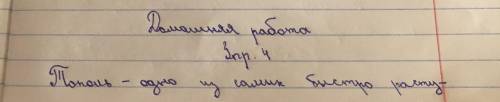 Домашняя работа
Упр. 4
Тополь - одно из самих быстро расту-